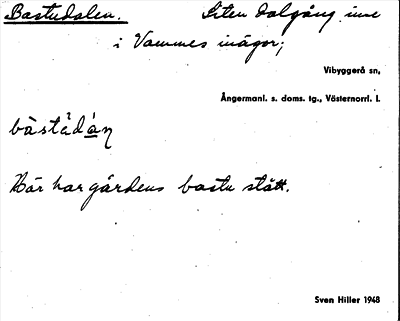 Bastudalen. Liten dalgång inne
i Vammes inägor;
Vibyggerå sn,
Ångermanl. s. doms. tg., Västernorrl. l.
bàstŭdàn
Här har gårdens bastu stått.
Sven Hiller 1948